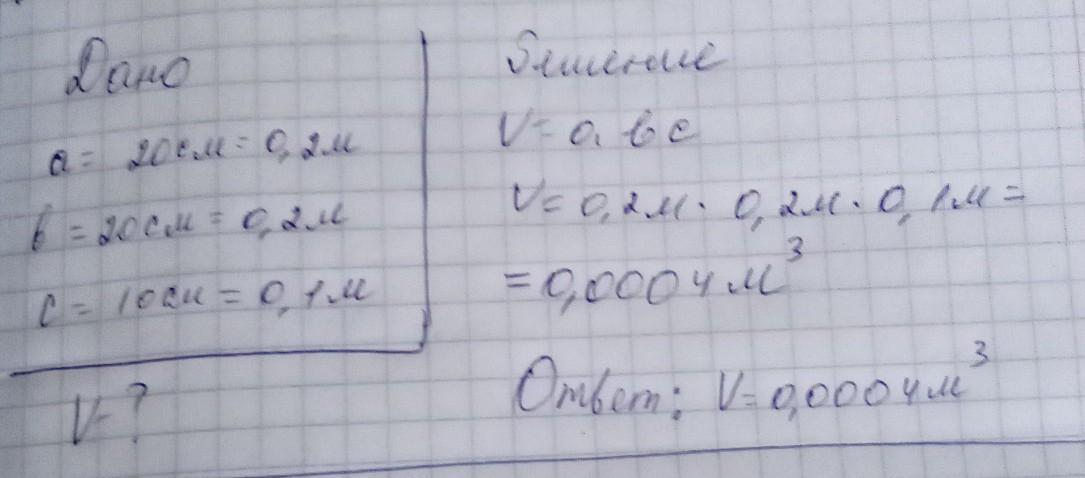 Дано
a = 20см = 0,2м
b = 20см = 0,2м
c = 10см = 0,1м
V-?
Решение
V= a b c
V= 0,2м · 0,2м · 0,1м =
= 0,0004м³
Ответ: V= 0,0004м³